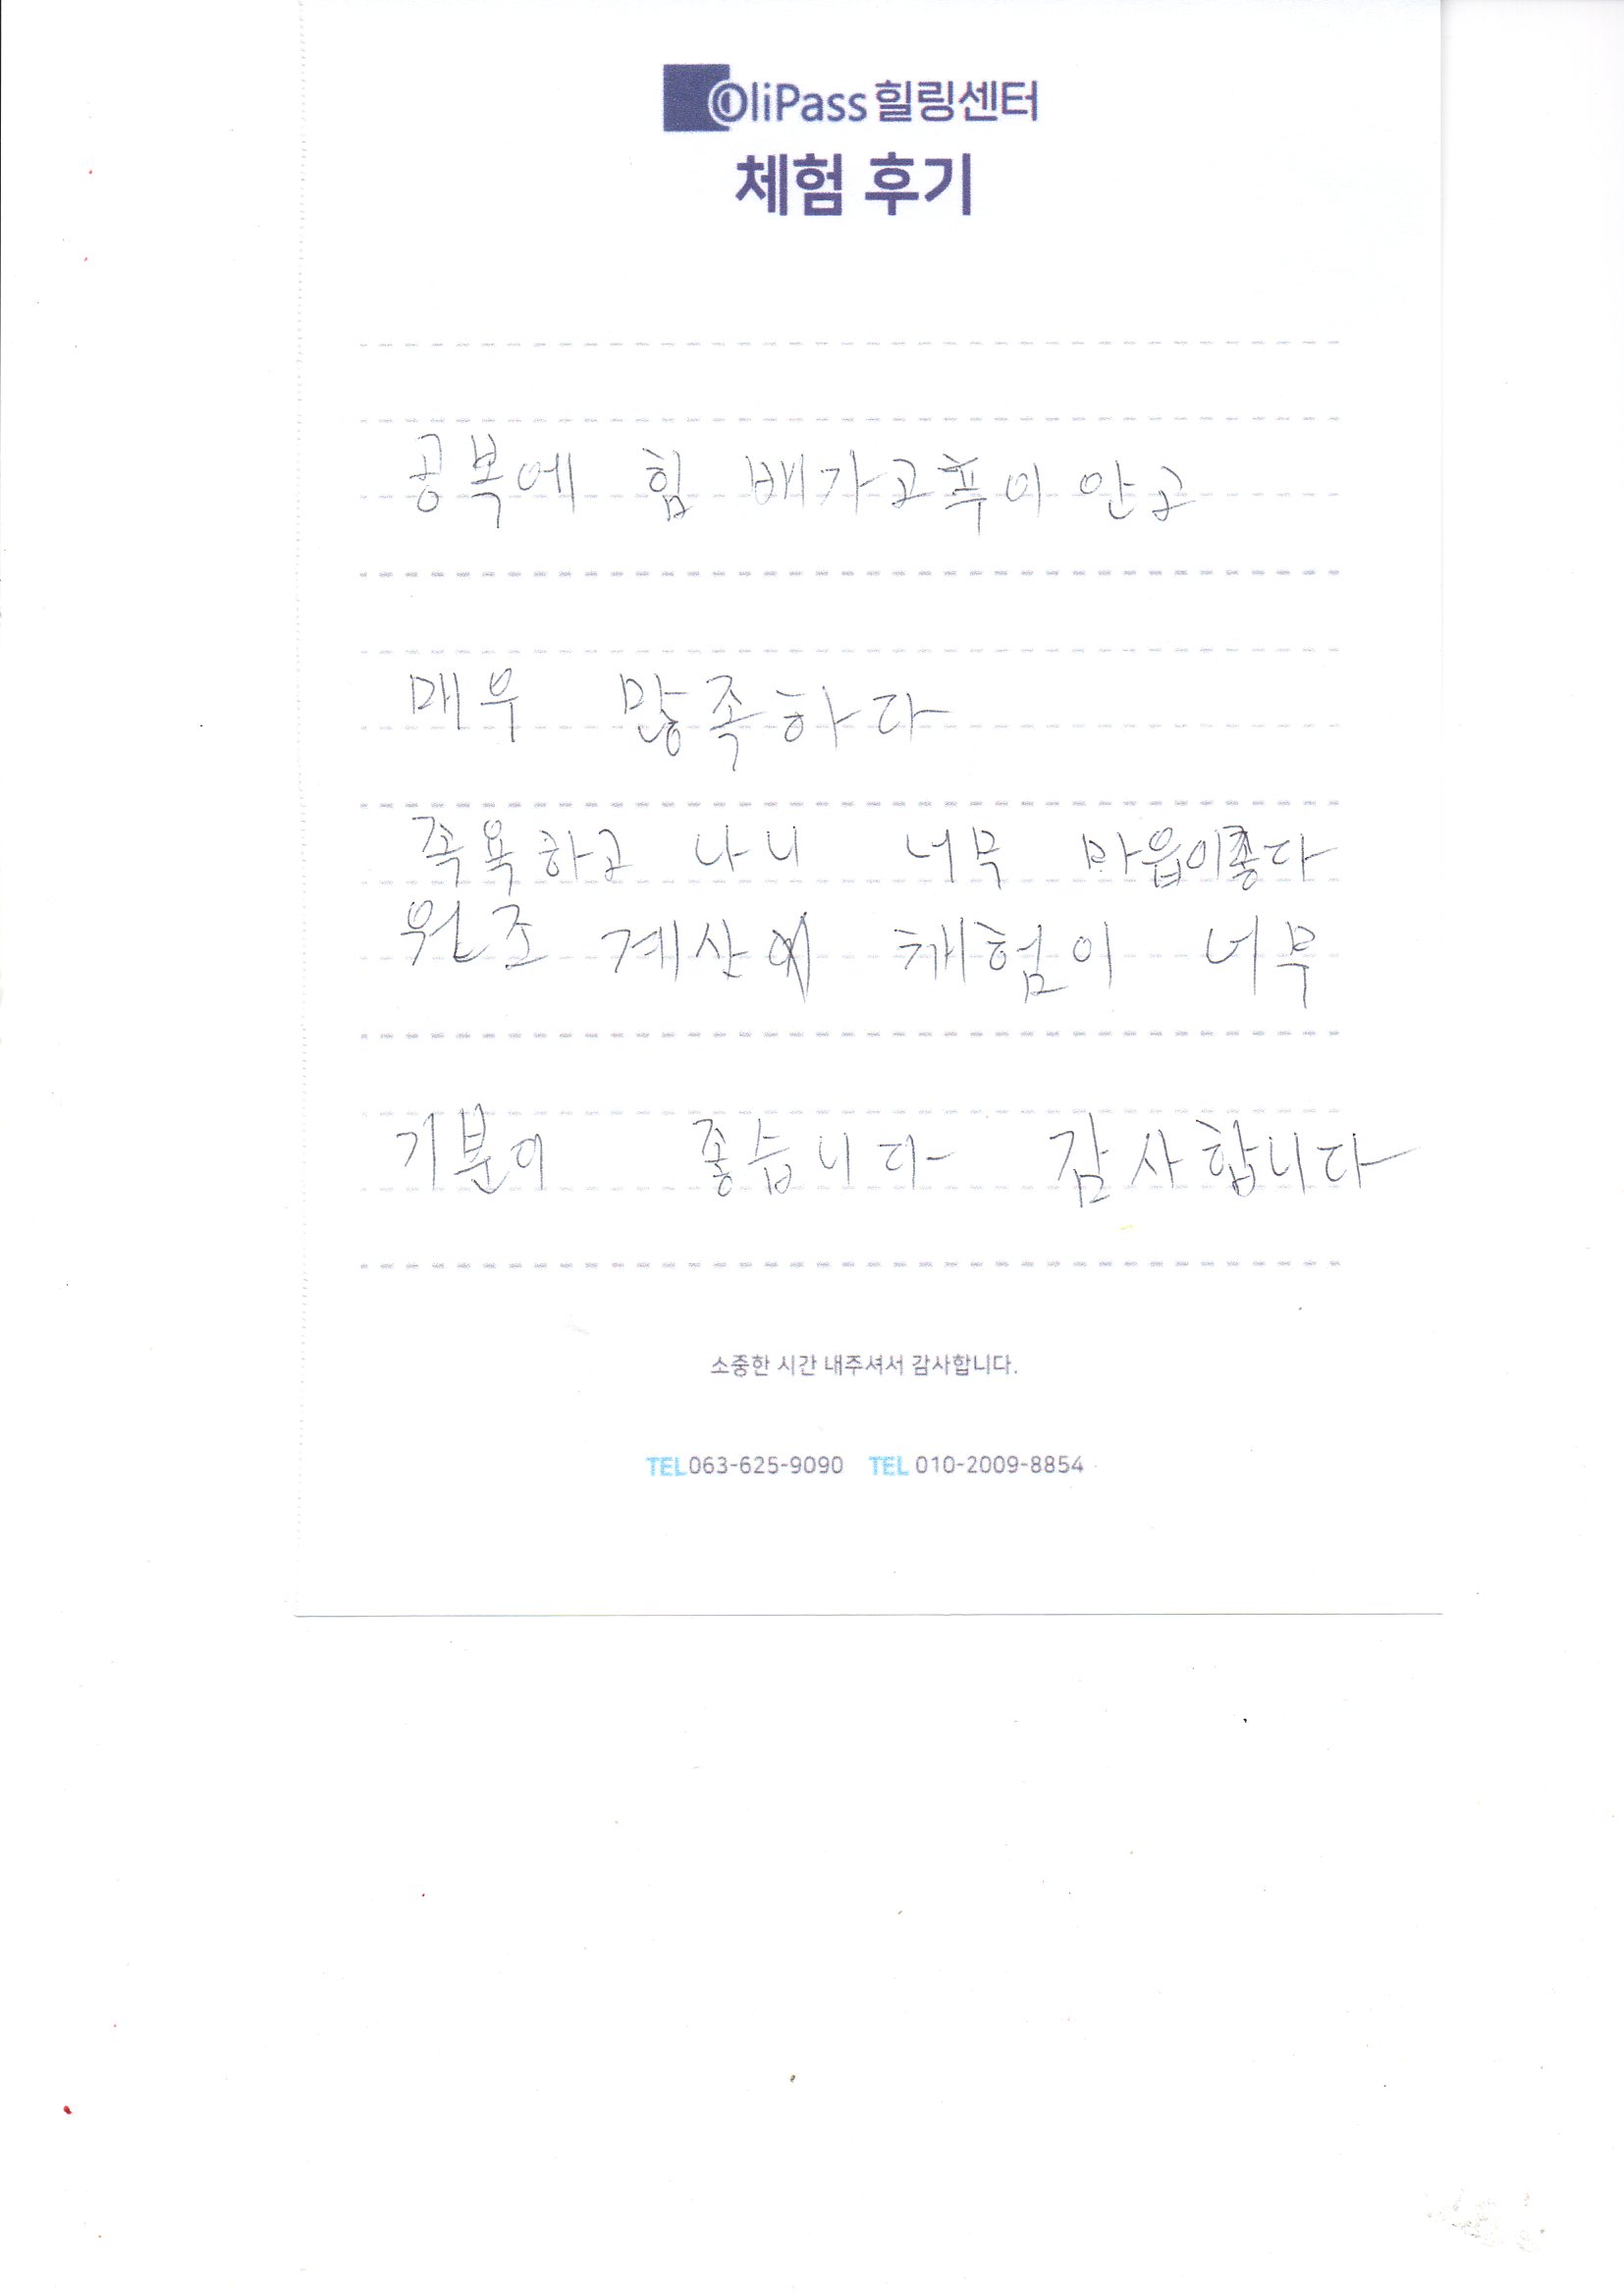 OliPass 힐링센터
체험 후기
공복에 힘 배가고푸이 안고
매우 많족하다
족욕하고 나니 너무 마읍이좋다
원조 계산 채험이 너무
기분이 좋습니다 감사합니다
소중한 시간 내주셔서 감사합니다.
TEL 063-625-9090 TEL 010-2009-8854